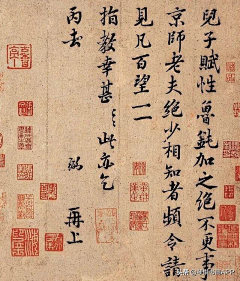 兒子賦性魯鈍加之絕不更事
京師老夫絕少相知者頻令請
見凡百望一一
指教幸甚〻此亦乞
丙去
弼 再上